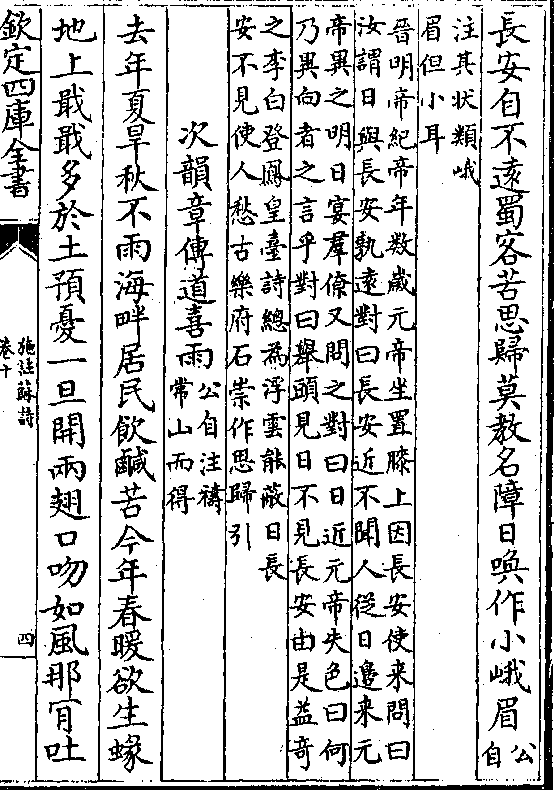 長安自不遠蜀客苦思歸莫教名障日喚作小峨眉公自
注其状類峨
眉但小耳
晉明帝紀帝年数歲元帝坐置膝上因長安使来問曰
汝謂日與長安孰逺對曰長安近不聞人從日邉来元
帝異之明日宴羣僚又問之對曰日近元帝失色曰何
乃異向者之言乎對曰舉頭見日不見長安由是益竒
之李白登鳳皇臺詩總為浮雲能蔽日長
安不見使人愁古樂府石崇作思歸引
次韻章傳道喜雨公自注禱
常山而得
去年夏旱秋不雨海畔居民飲鹹苦今年春暖欲生蝝
地上戢戢多於土預憂一旦開兩翅口吻如風那肎吐
欽定四庫全書
施註蘇詩
卷十
四